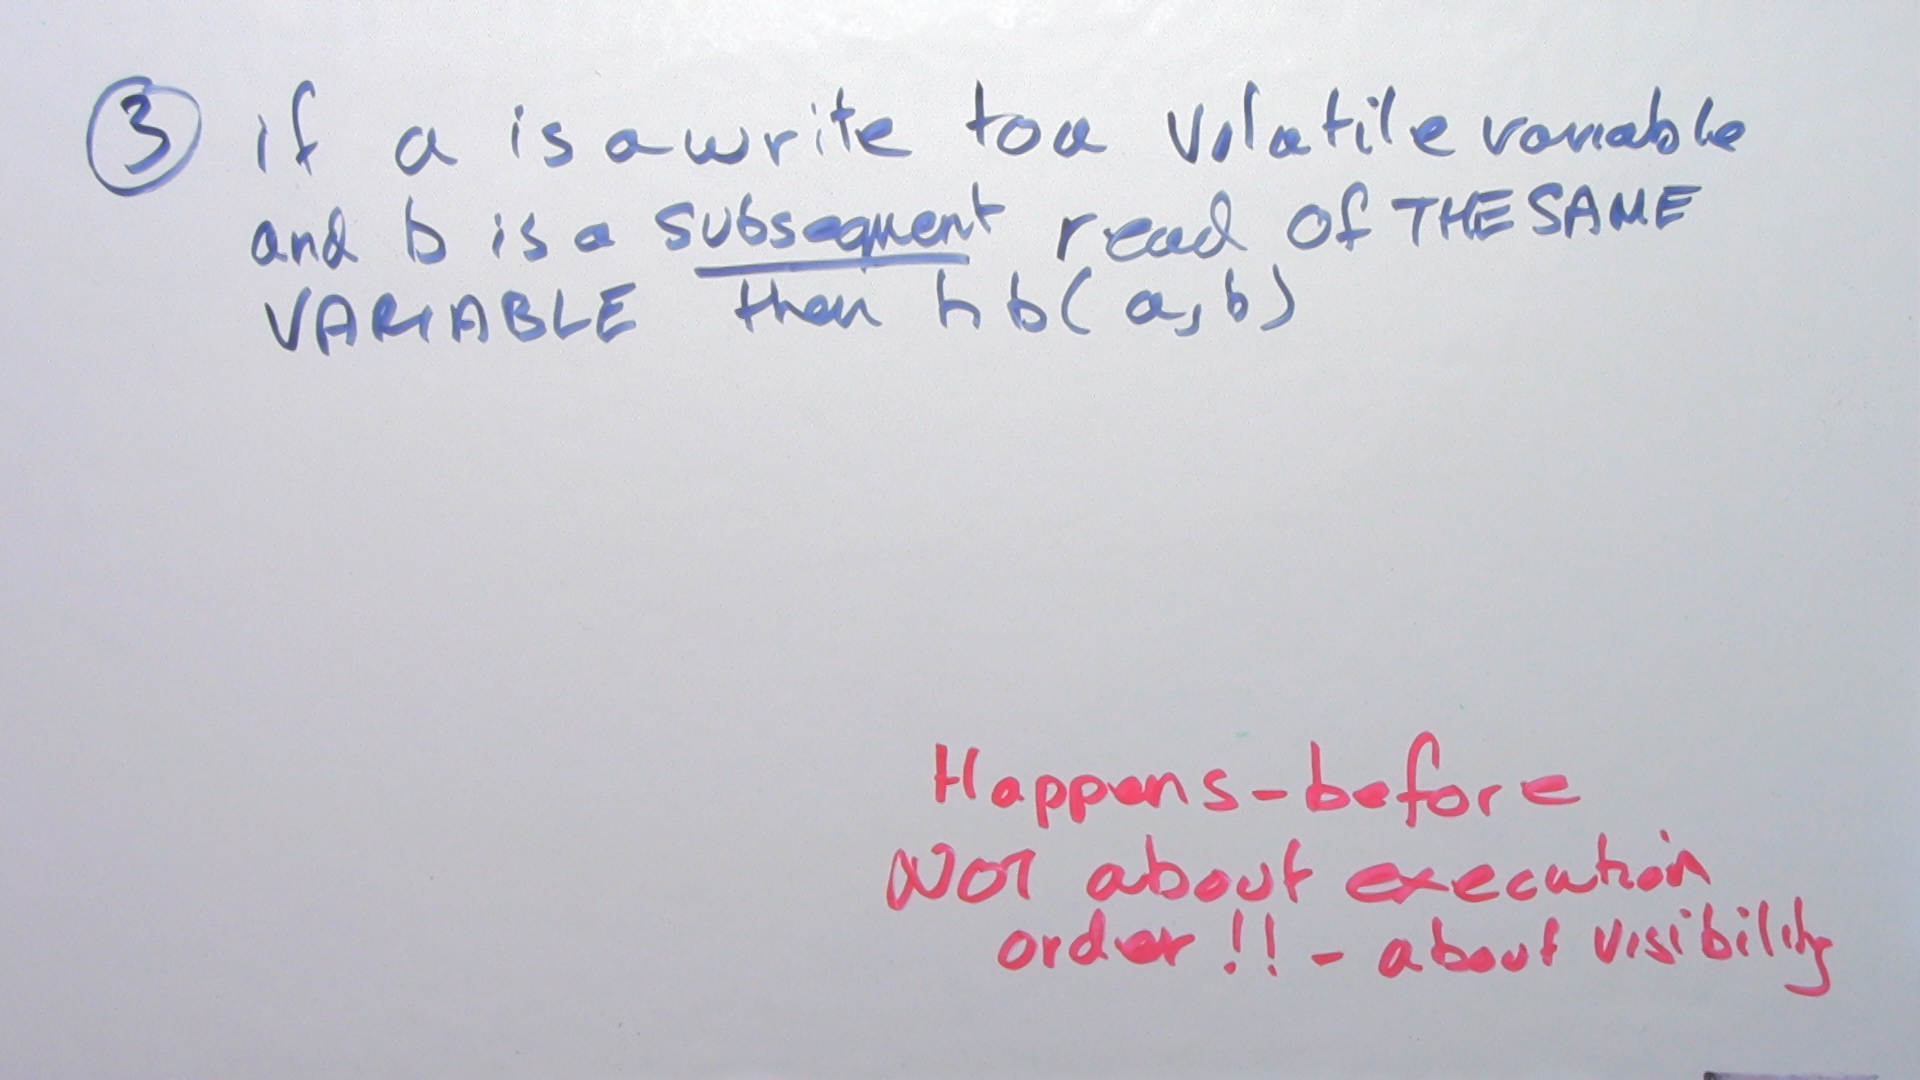 ③ if a is a write to a volatile variable
and b is a subsequent read of THE SAME
VARIABLE then hb(a,b)
Happens-before
NOT about execution
order!! - about visibility